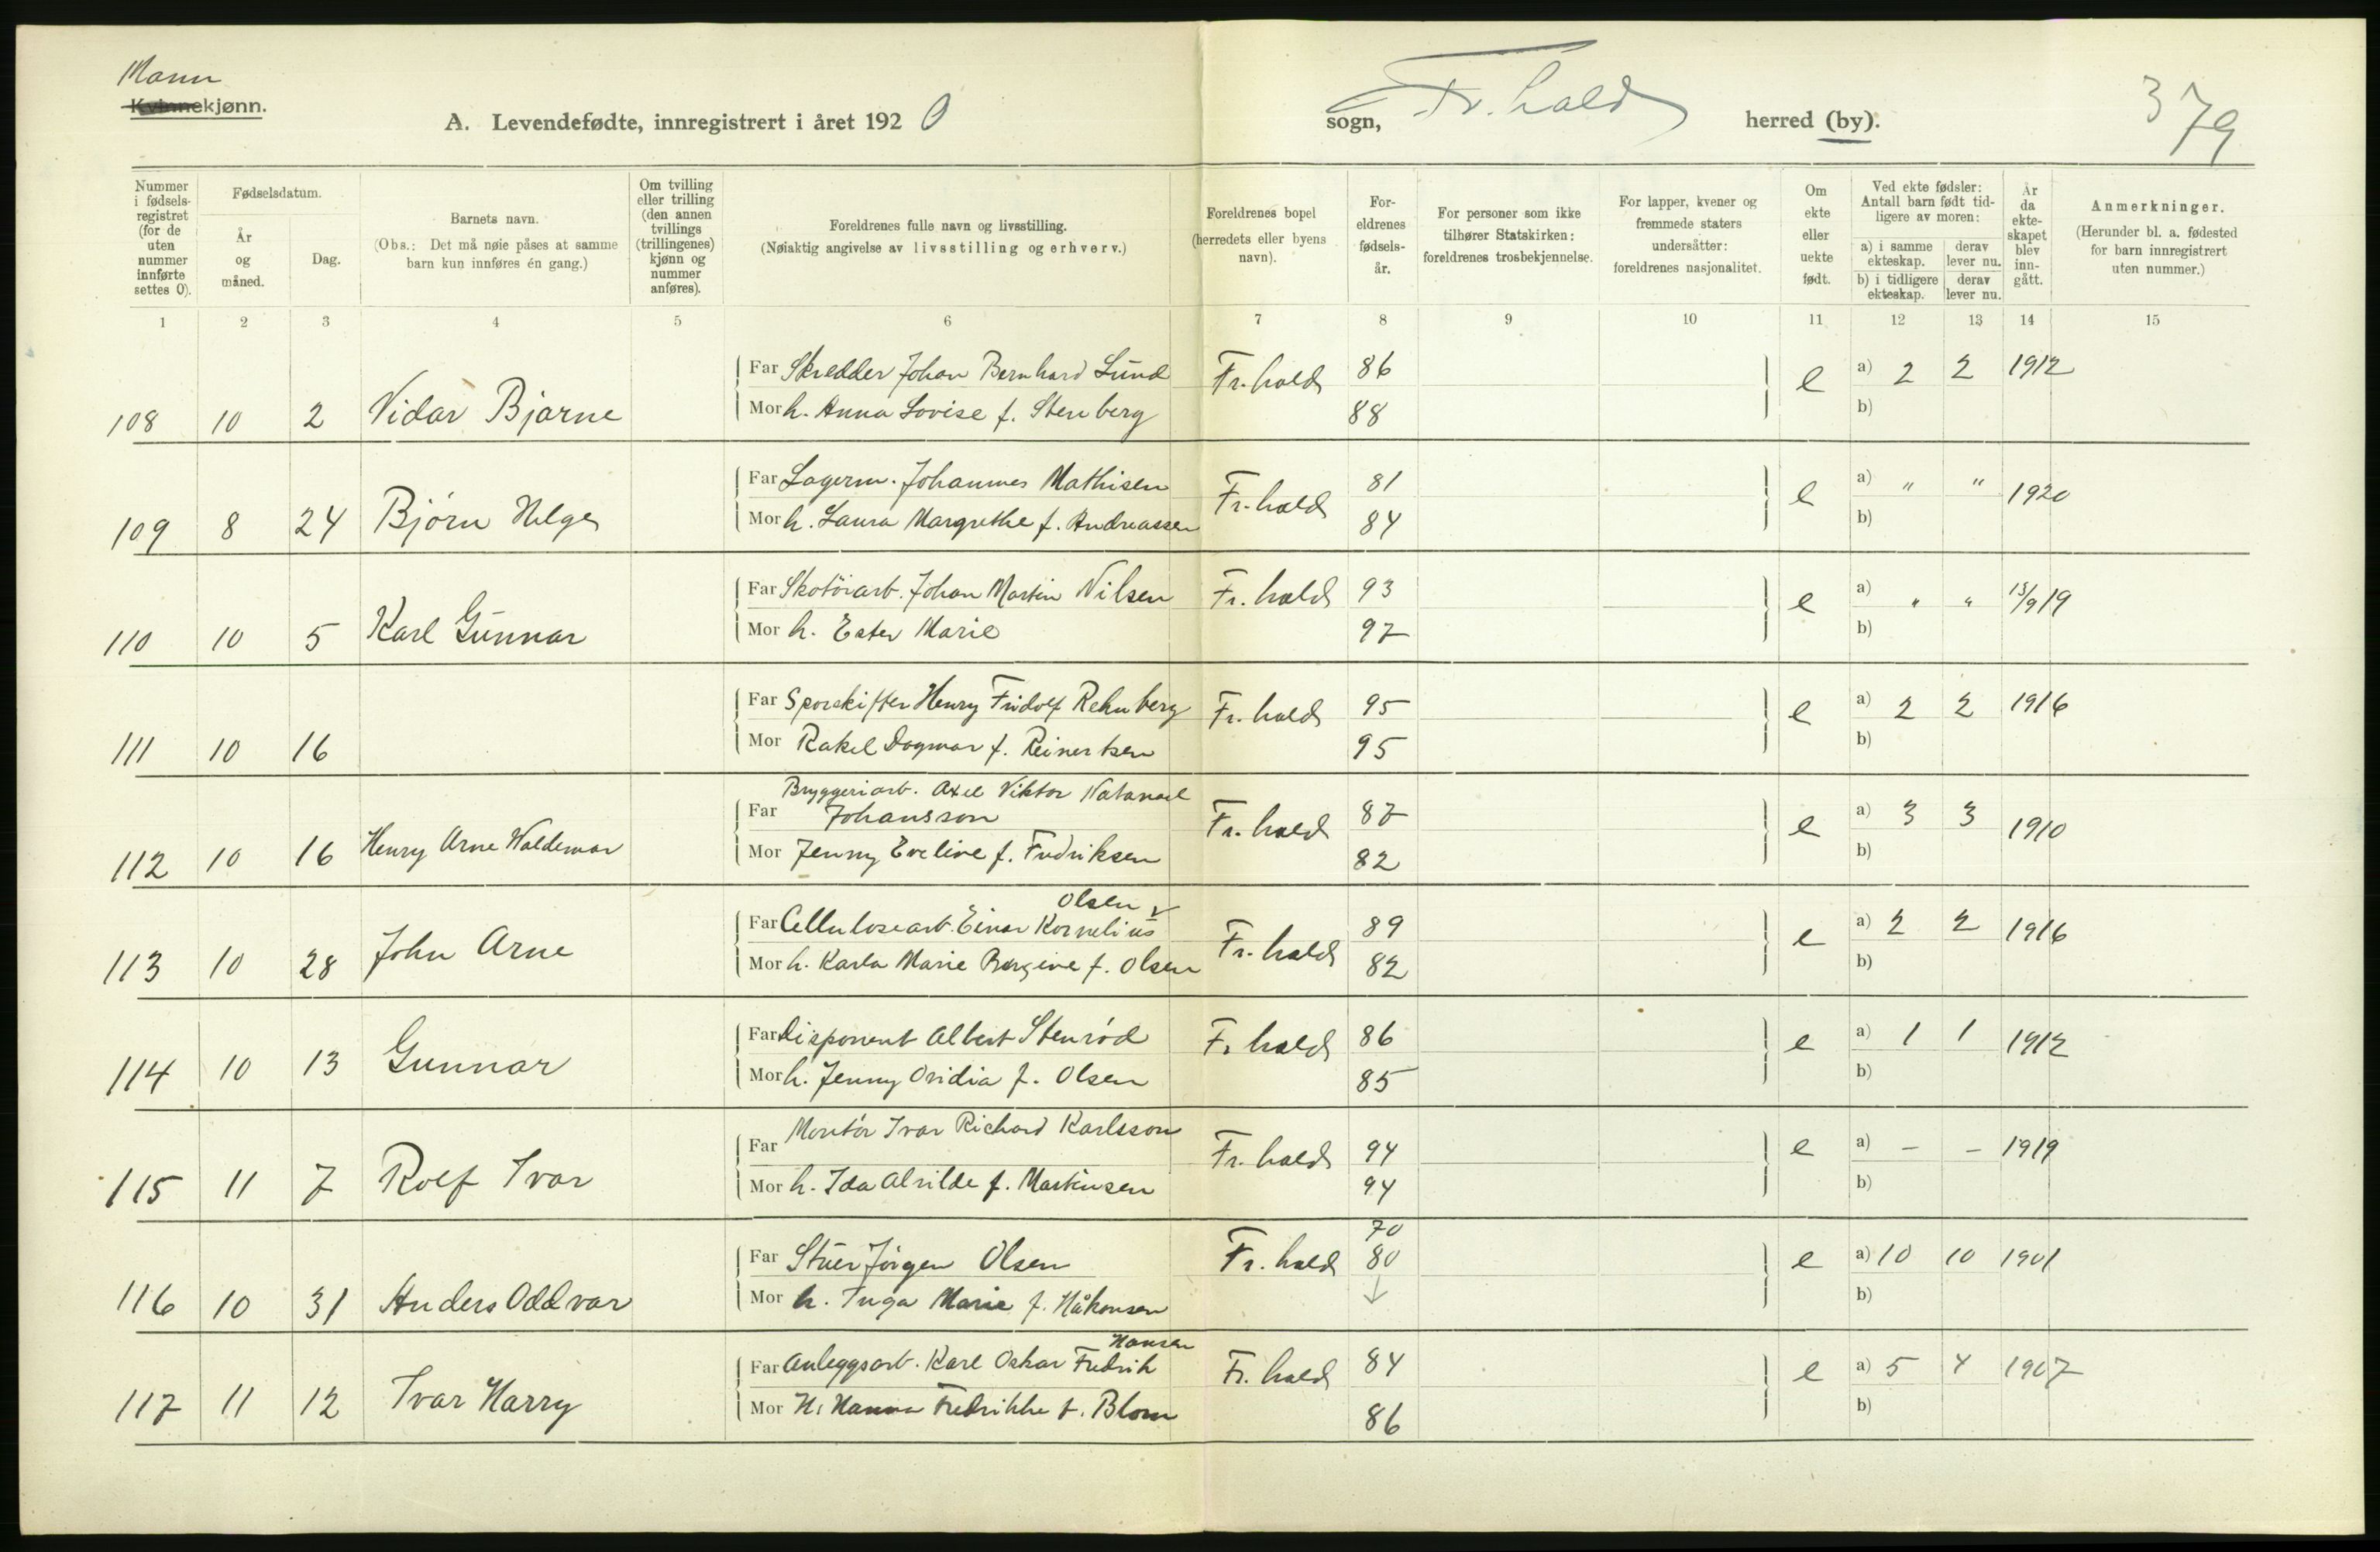 Mann
Kvinnekjønn.
A. Levendefødte, innregistrert i året 1920
sogn, Fr.hald herred (by).
379
Nummer i fødselsregistret (for de uten nummer innførte settes 0).
Fødselsdatum.
År og måned.
Dag.
Barnets navn.
(Obs.: Det må nøie påses at samme barn kun innføres én gang.)
Om tvilling eller trilling (den annen tvillings (trillingenes) kjønn og nummer anføres).
Foreldrenes fulle navn og livsstilling.
(Nøiaktig angivelse av livsstilling og erhverv.)
Foreldrenes bopel (herredets eller byens navn).
Foreldrenes fødselsår.
For personer som ikke tilhører Statskirken: foreldrenes trosbekjennelse.
For lapper, kvener og fremmede staters undersåtter: foreldrenes nasjonalitet.
Om ekte eller uekte født.
Ved ekte fødsler: Antall barn født tidligere av moren:
a) i samme ekteskap. derav lever nu.
b) i tidligere ekteskap. derav lever nu.
År da ekteskapet blev inngått.
Anmerkninger.
(Herunder bl. a. fødested for barn innregistrert uten nummer.)
1 2 3 4 5 6 7 8 9 10 11 12 13 14 15
Far Skredder Johan Bernhard Lund Fr.hald 86 e a) 2 2 1912
108 10 2 Vidar Bjarne Mor h. Anna Lovise f. Stenberg 88 b)
Far Lagerm. Johannes Mathisen Fr.hald 81 e a) " " 1920
109 8 24 Bjørn Helge Mor h. Laura Margrethe f. Andreassen 84 b)
Far Skotøiarb. Johan Martin Nilsen Fr.hald 93 e a) " " 15/9 19
110 10 5 Karl Gunnar Mor h. Ester Marie 97 b)
Far Sporskifter Henry Fridolf Rehnberg Fr.hald 95 e a) 2 2 1916
111 10 16 Mor Rakel Dagmar f. Reinertsen 95 b)
Bryggeriarb. Axel Viktor Natanael
Far Johansson Fr.hald 87 e a) 3 3 1910
112 10 16 Henry Arne Waldemar Mor Jenny Eveline f. Fredriksen 82 b)
Olsen
Far Cellulosearb. Einar Kornelius Fr.hald 89 e a) 2 2 1916
113 10 28 John Arne Mor h. Karla Marie Bergine f. Olsen 82 b)
Far Disponent Albert Stenrød Fr.hald 86 e a) 1 1 1912
114 10 13 Gunnar Mor h. Jenny Ovidia f. Olsen 85 b)
Far Montør Ivar Richard Karlsson Fr.hald 94 e a) - - 1919
115 11 7 Rolf Ivar Mor h. Ida Alvilde f. Martinsen 94 b)
70
Far Stuer Jørgen Olsen Fr.hald 80 e a) 10 10 1901
116 10 31 Anders Oddvar Mor h. Inga Marie f. Håkonsen b)
Hansen
Far Anleggsarb. Karl Oskar Fredrik Fr.hald 84 e a) 5 4 1907
117 11 12 Ivar Harry Mor H. Hanna Fredrikke f. Blom 86 b)